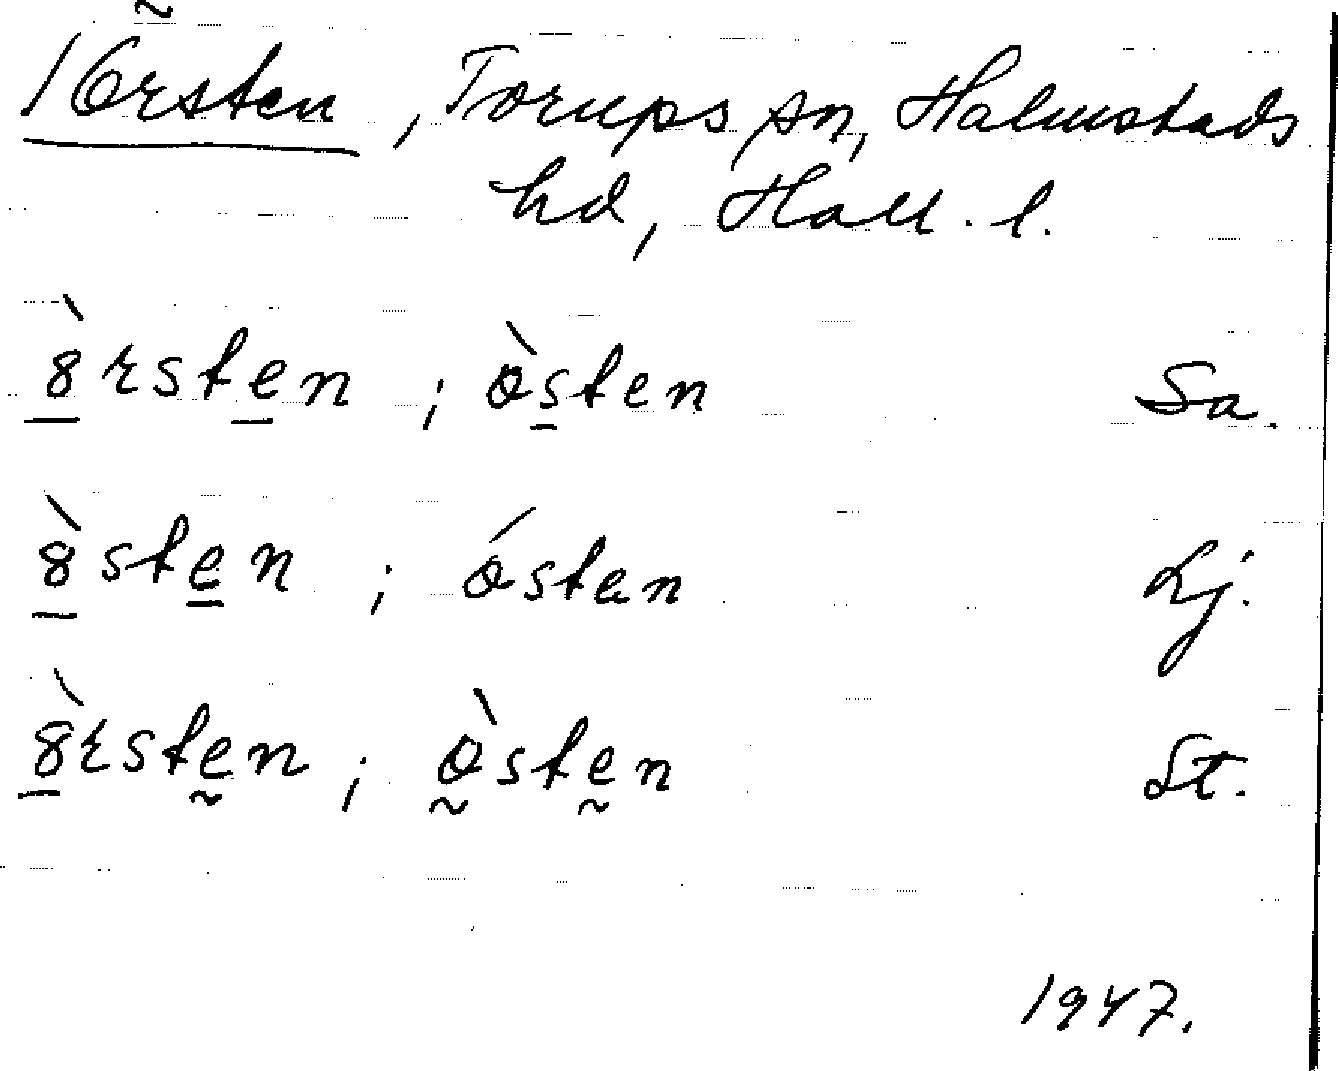 1 Örsten, Torups sn, Halmstads
hd, Hall. l.
8̀rsten ; òsten Sa.
8̀sten ; ósten Lj.
8̀rsten ; òsten St.
1947.